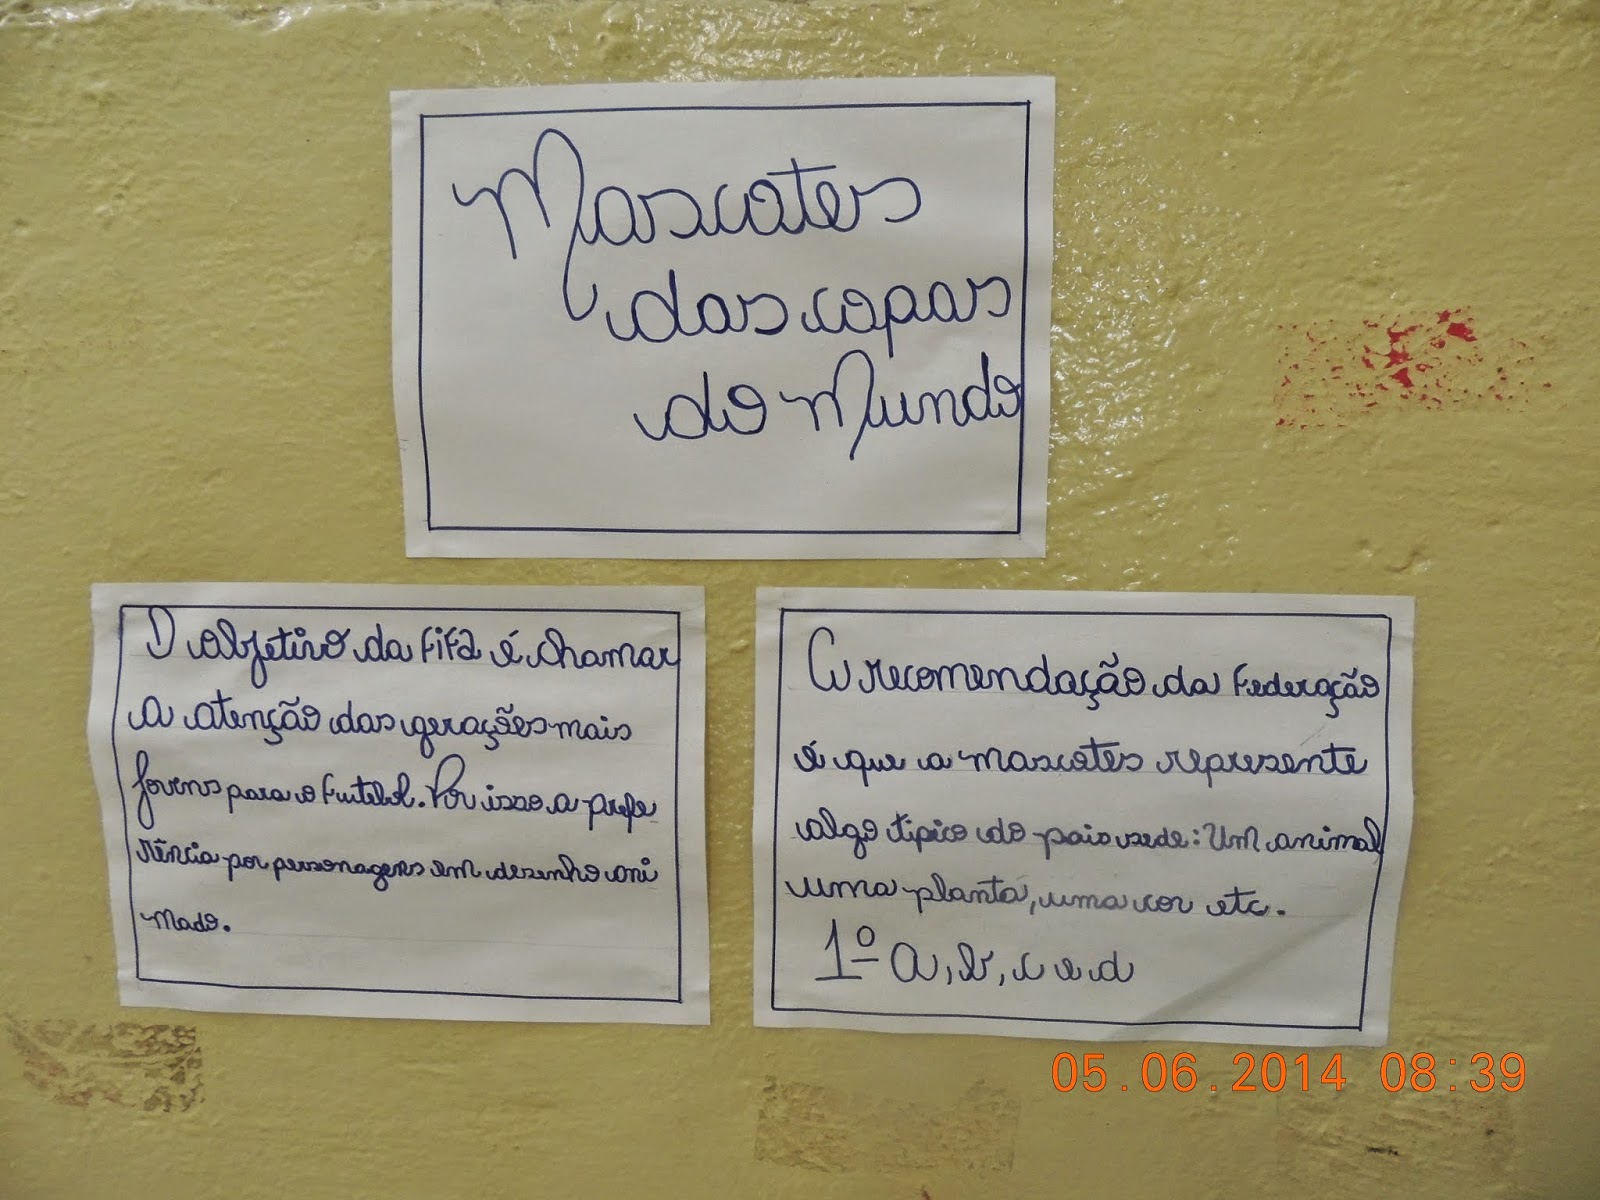 Mascotes
das copas
do Mundo
O objetivo da FIFA é chamar
a atenção das gerações mais
jovens para o Futebol. Por isso a prefe
rência por personagens em desenho ani
mado.
A recomendação da Federação
é que a mascotes represente
algo tipico do pais sede: Um animal
uma planta, uma cor etc.
1º A, b, c e d
05.06.2014 08:39